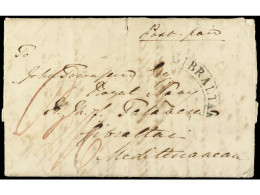 Post paid
GIBRALTAR
To
John Townsend Esq
Royal Navy
H.M.S.
Gibraltar
Mediterranean